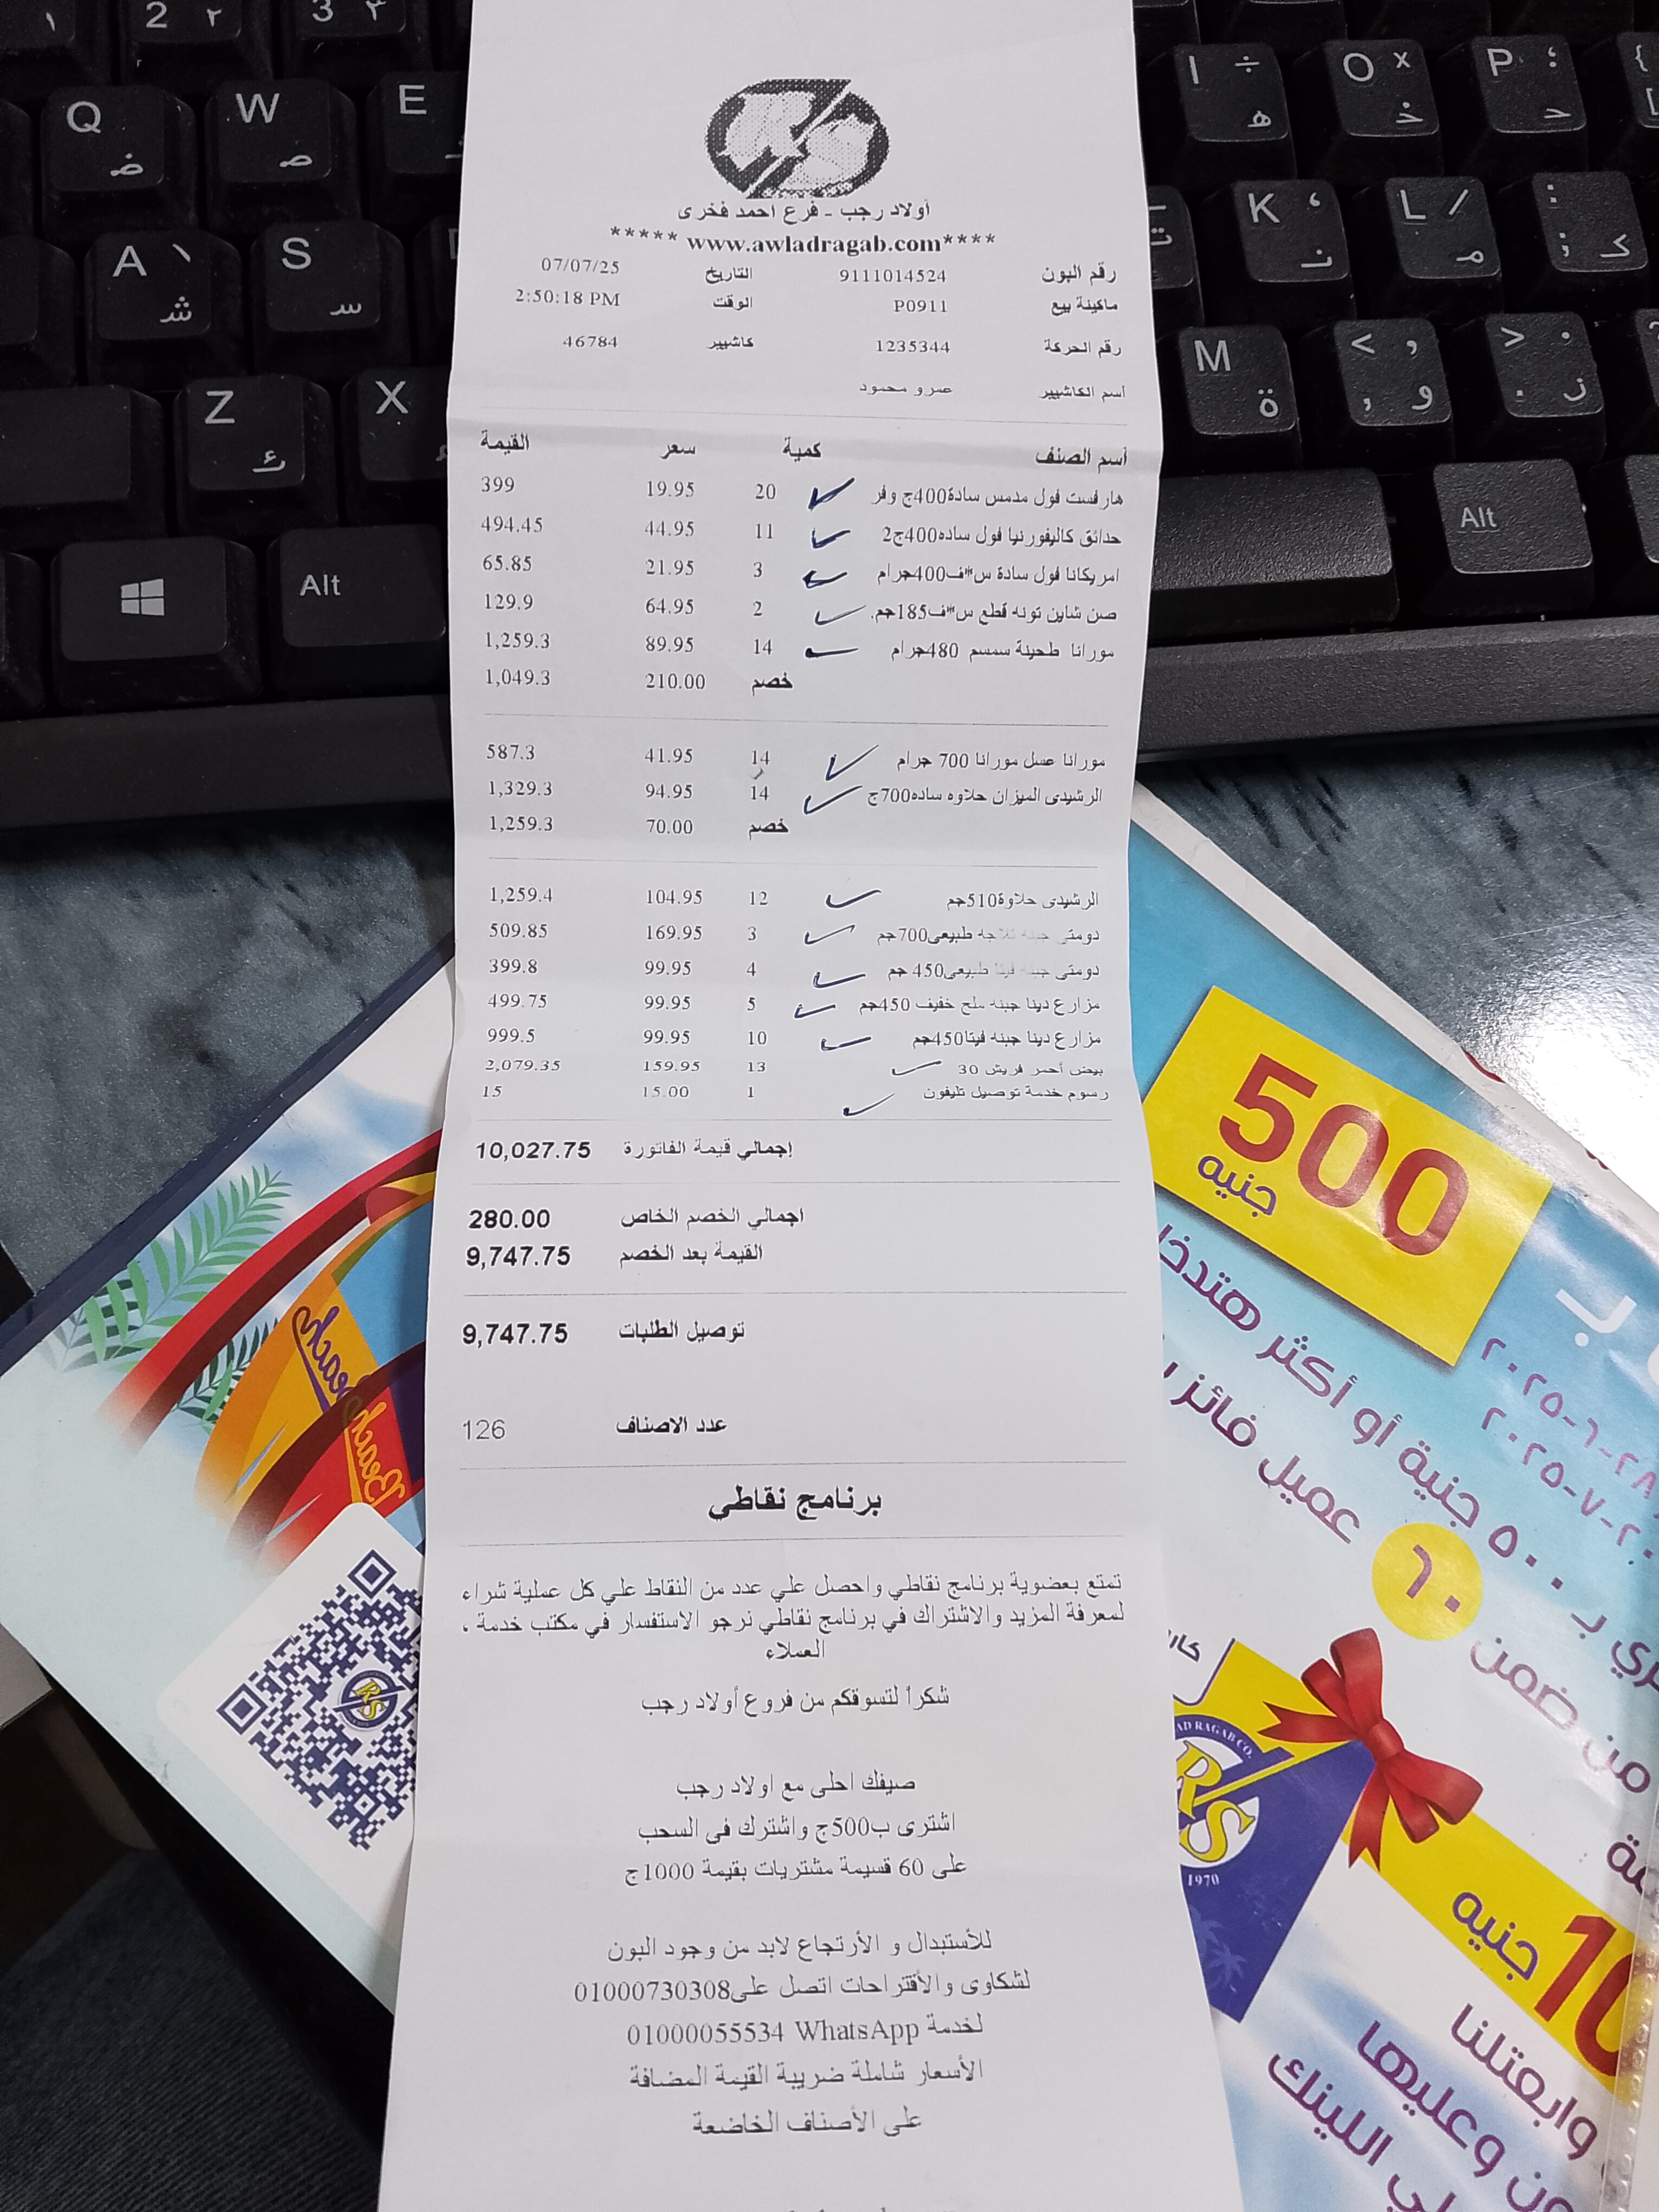 أولاد رجب - فرع احمد فخرى
***** www.awladragab.com****
رقم البون 9111014524 التاريخ 07/07/25
ماكينة بيع P0911 الوقت 2:50:18 PM
رقم الحركة 1235344 كاشيير 46784
أسم الكاشيير عمرو محمود
أسم الصنف كمية سعر القيمة
هارفست فول مدمس سادة400ج وفر 20 19.95 399
حدائق كاليفورنيا فول ساده400ج2 11 44.95 494.45
امريكانا فول سادة س*ف400جرام 3 21.95 65.85
صن شاين تونه قطع س*ف185جم. 2 64.95 129.9
مورانا طحينة سمسم 480جرام 14 89.95 1,259.3
خصم 210.00 1,049.3
مورانا عسل مورانا 700 جرام 14 41.95 587.3
الرشيدى الميزان حلاوه ساده700ج 14 94.95 1,329.3
خصم 70.00 1,259.3
الرشيدى حلاوة510جم 12 104.95 1,259.4
دومتى جبنه ثلاجه طبيعى700جم 3 169.95 509.85
دومتى جبنه فيتا طبيعى450 جم 4 99.95 399.8
مزارع دينا جبنه ملح خفيف 450جم 5 99.95 499.75
مزارع دينا جبنه فيتا450جم 10 99.95 999.5
بيض أحمر فريش 30 13 159.95 2,079.35
رسوم خدمة توصيل تليفون 1 15.00 15
إجمالي قيمة الفاتورة 10,027.75
اجمالي الخصم الخاص 280.00
القيمة بعد الخصم 9,747.75
توصيل الطلبات 9,747.75
عدد الاصناف 126
برنامج نقاطي
تمتع بعضوية برنامج نقاطي واحصل علي عدد من النقاط علي كل عملية شراء
لمعرفة المزيد والاشتراك في برنامج نقاطي نرجو الاستفسار في مكتب خدمة ،
العملاء
شكراً لتسوقكم من فروع أولاد رجب
صيفك احلى مع اولاد رجب
اشترى ب500ج واشترك فى السحب
على 60 قسيمة مشتريات بقيمة 1000ج
للأستبدال و الأرتجاع لابد من وجود البون
لشكاوى والأقتراحات اتصل على01000730308
لخدمة WhatsApp 01000055534
الأسعار شاملة ضريبة القيمة المضافة
على الأصناف الخاضعة
500
جنيه
٢٠٢٥-٦-٢٨
٢٠٢٥-٧-٢٠
٥٠٠ جنية أو أكثر هتدخل
من ضمن ٦٠ عميل فائز
جنيه
وابعتلنا
وعليها
اللينك
RS
1970
1 ١
2 ٢
3 ٣
Q ض
W ص
E
A ش
S س
Z ئ
X ء
Alt
I ÷ ه
O × خ
P ؛ ح
K ، ن
L / م
: ك ;
M ة
< , و
> . ز
Alt